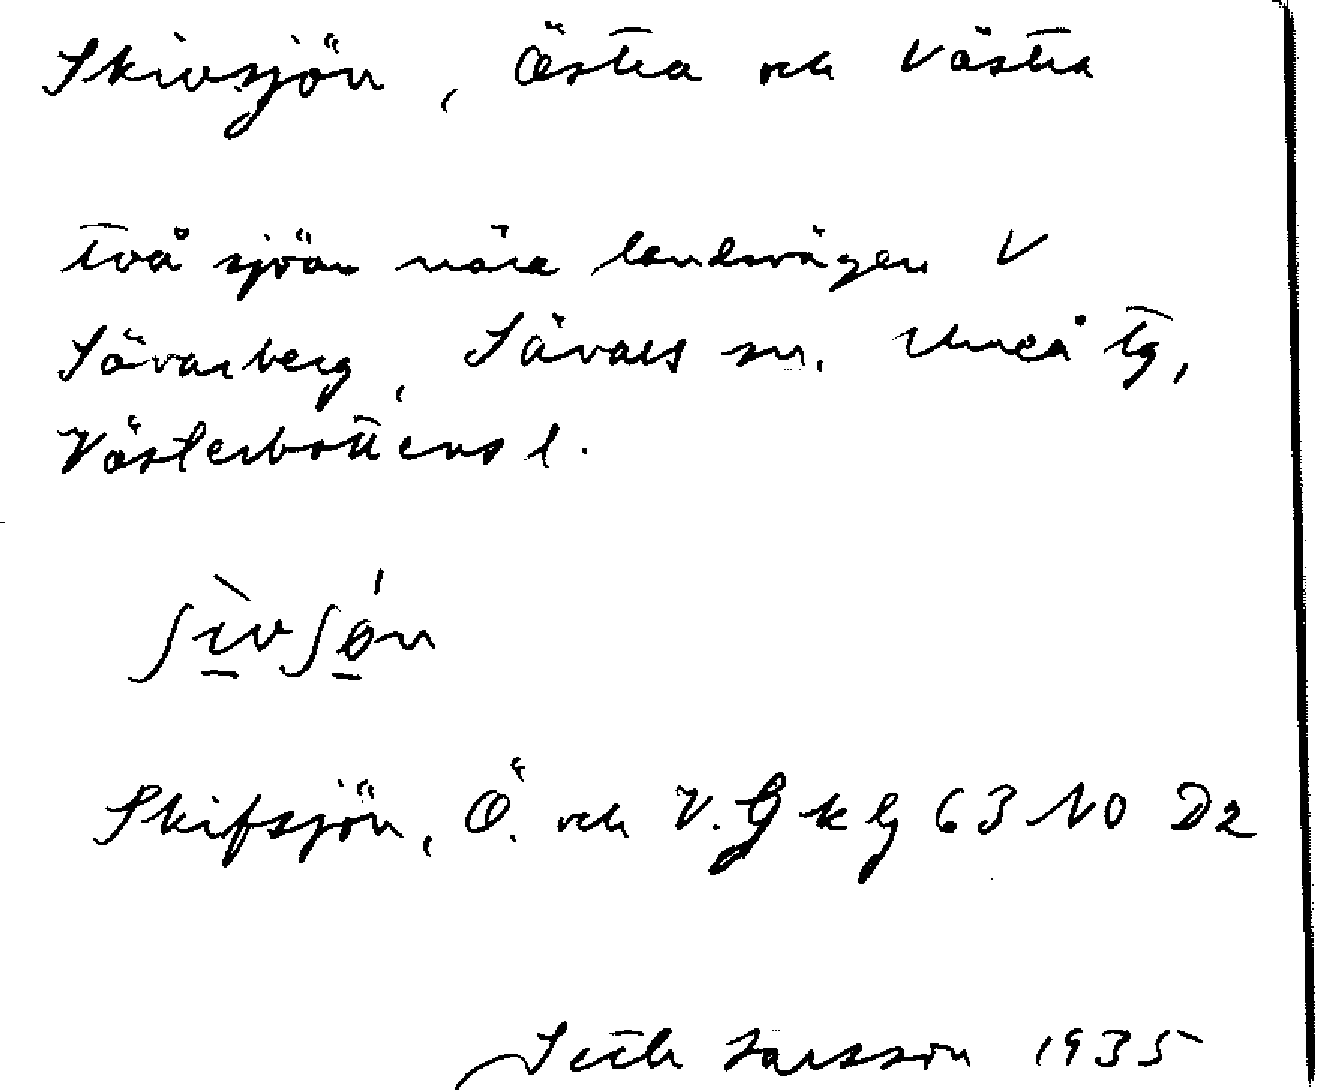 Skivsjön, Östra och Västra
två sjöar nära landsvägen V
Sävarberg, Sävars sn. Umeå tg,
Västerbottens l.
ʃìvʃǿn
Skifsjön, Ö. och V. Gkg 63 NO D2
Seth Larsson 1935